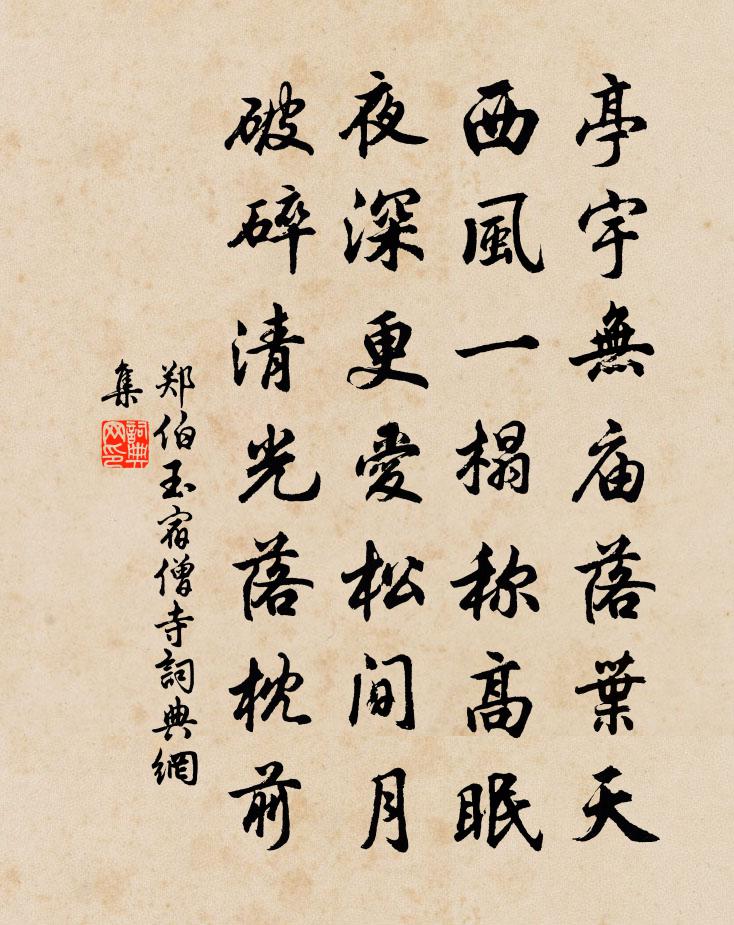 亭宇無庙落葉天
西風一榻称高眠
夜深更愛松間月
破碎清光落枕前
郑伯玉宿僧寺詞典網
集
詞典網印